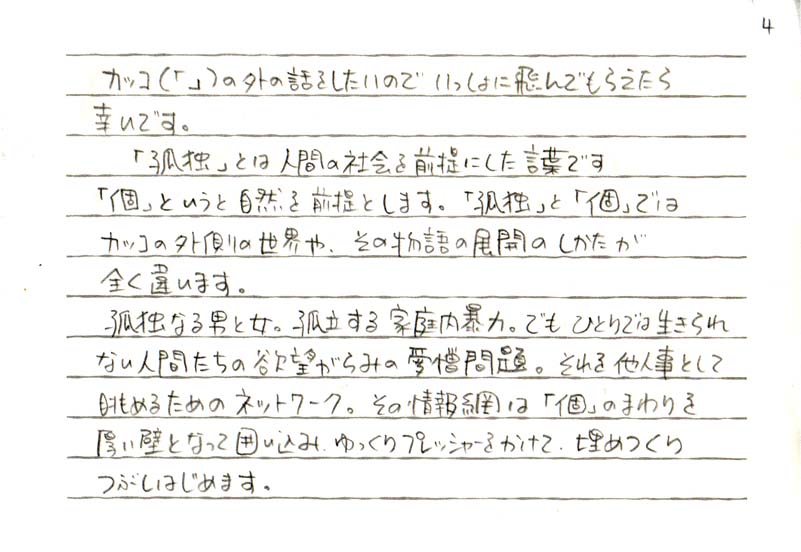 4
カッコ(「」)の外の話をしたいので いっしょに飛んでもらえたら
幸いです。
「孤独」とは人間の社会を前提にした言葉です
「個」というと自然を前提とします。「孤独」と「個」では
カッコの外側の世界や、その物語の展開のしかたが
全く違います。
孤独なる男と女。孤立する家庭内暴力。でもひとりでは生きられ
ない人間たちの欲望がらみの愛憎問題。それを他人事として
眺めるためのネットワーク。その情報網は「個」のまわりを
厚い壁となって囲い込み、ゆっくりプレッシャーをかけて、埋めつくり
つぶしはじめます。